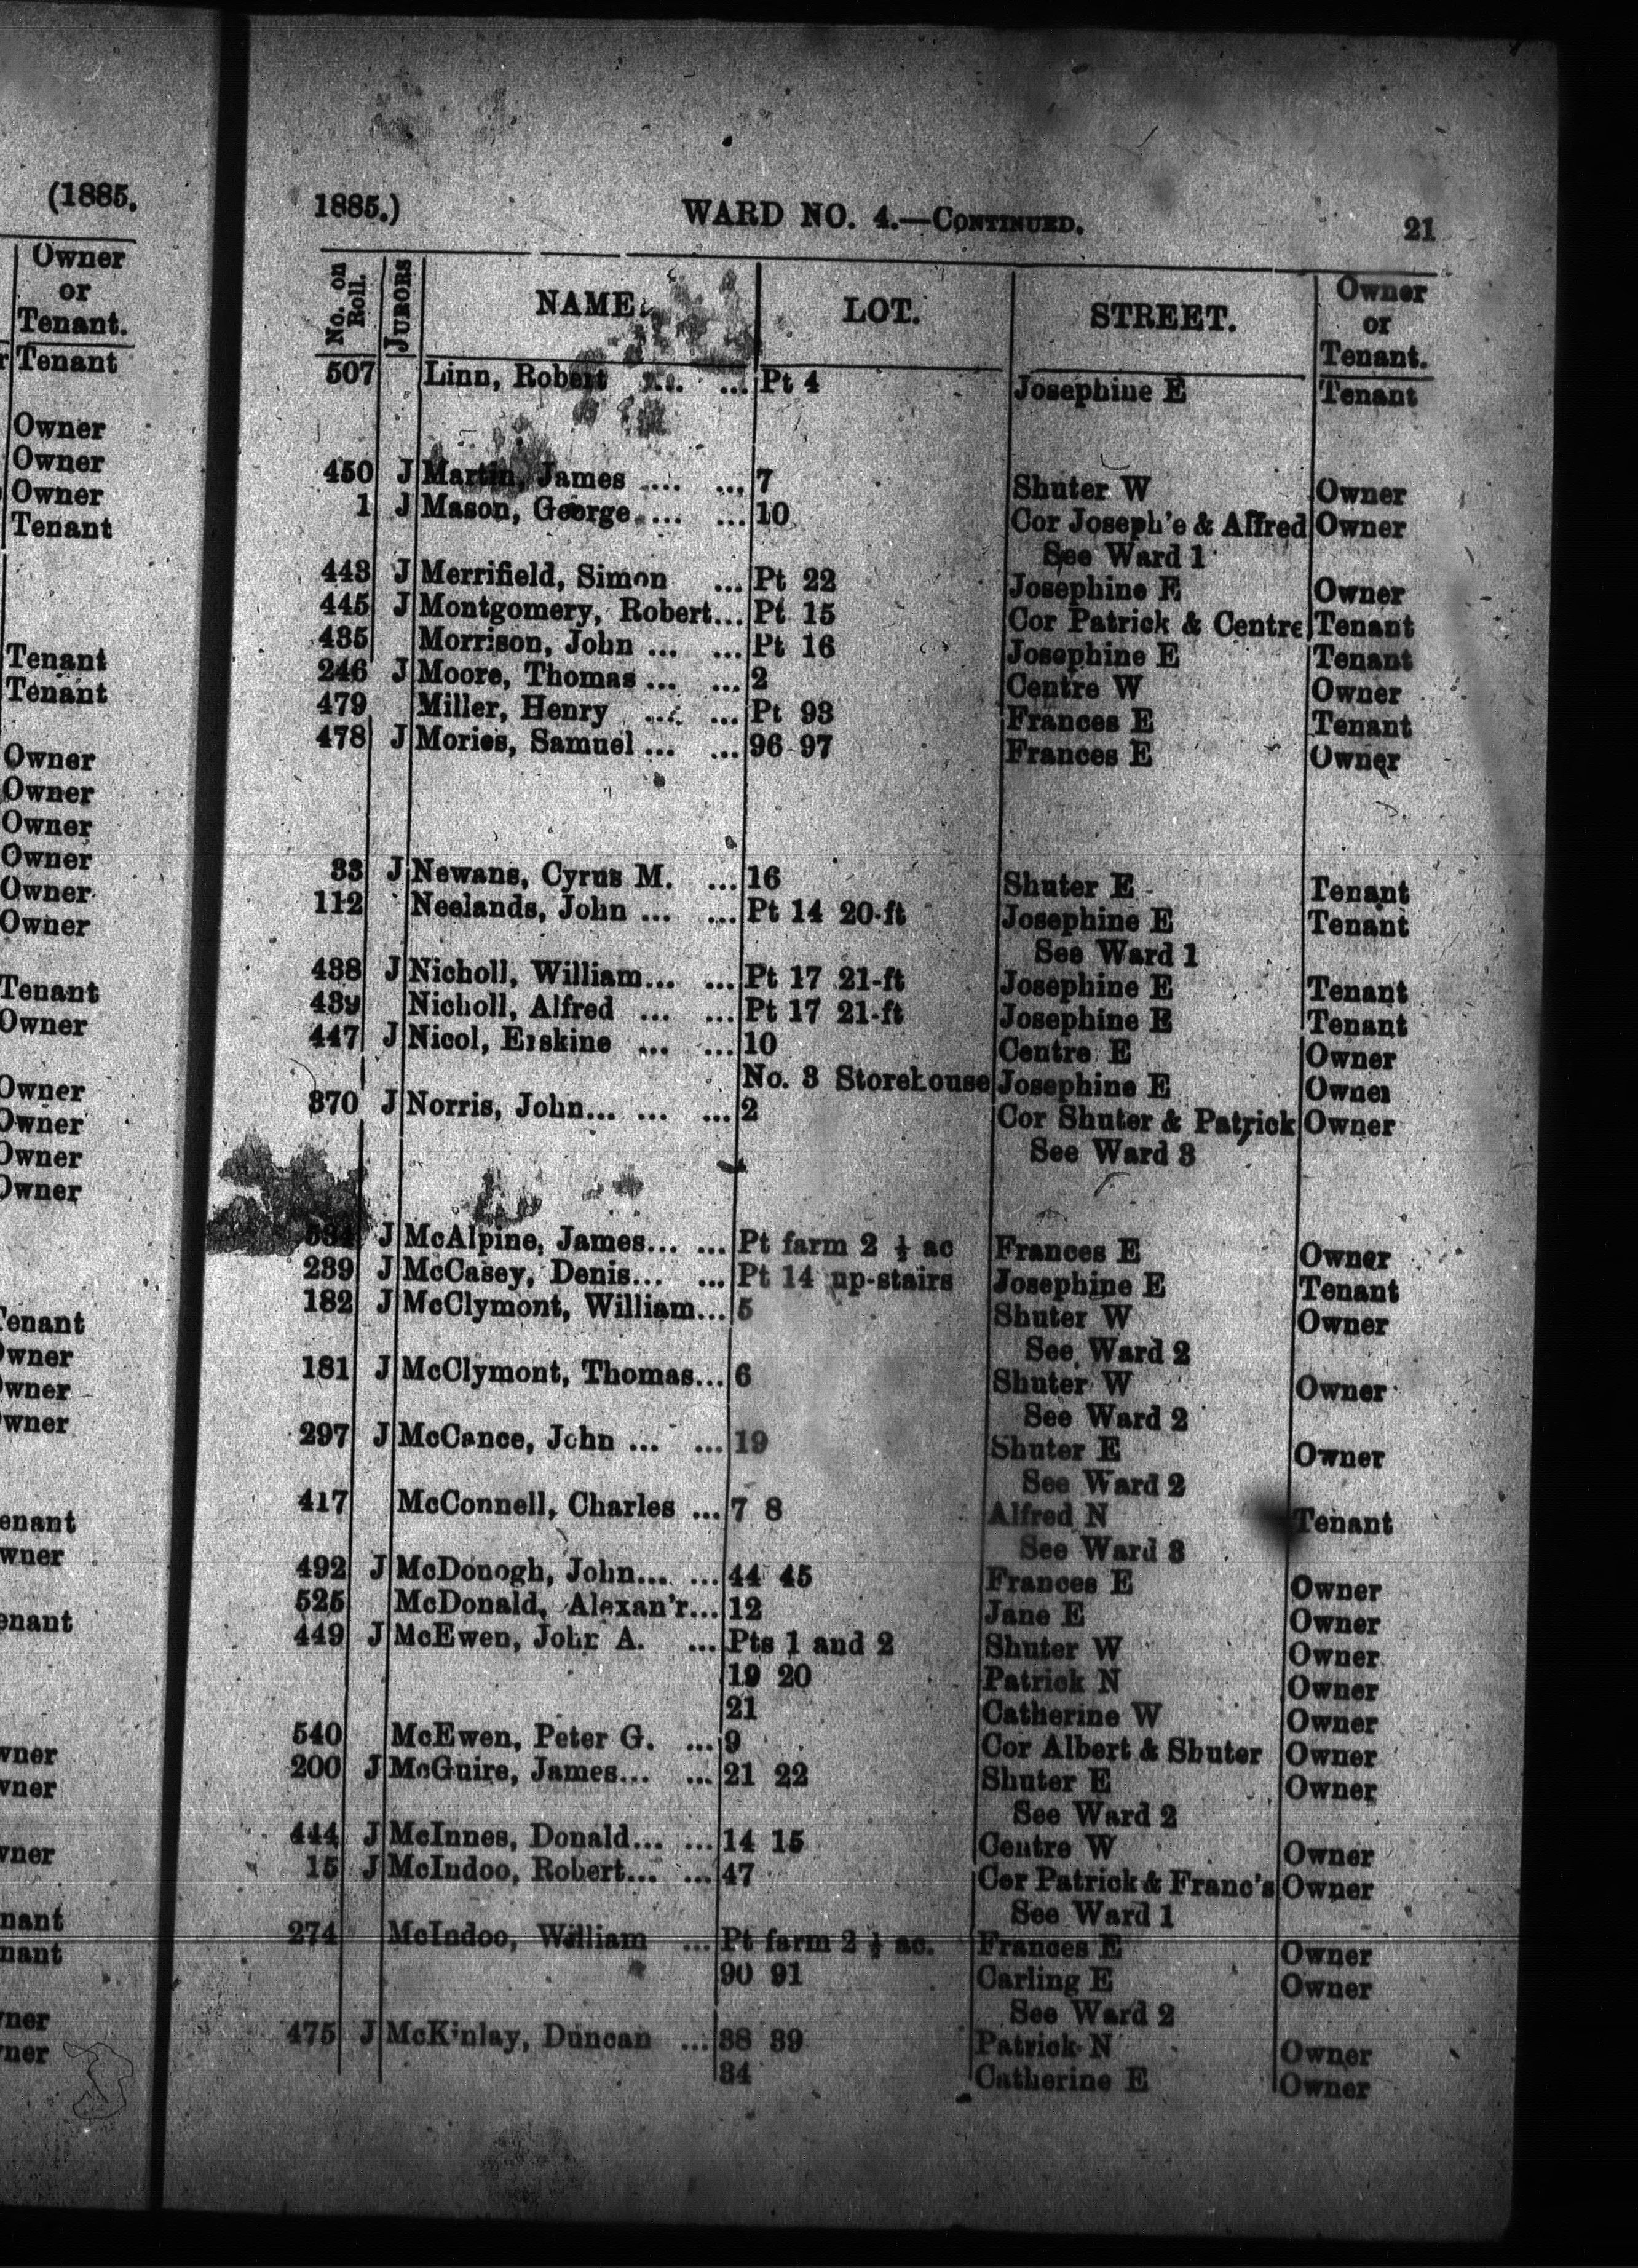 (1885.
Owner
or
Tenant.
Tenant
Owner
Owner
Owner
Tenant
Tenant
Tenant
Owner
Owner
Owner
Owner
Owner
Owner
Tenant
Owner
Owner
Owner
Owner
Owner
1885.) WARD NO. 4.—CONTINUED. 21
No. on Roll. JURORS NAME. LOT. STREET. Owner or Tenant.
507 Linn, Robert ... ... Pt 4 Josephine E Tenant
450 J Martin, James .... ... 7 Shuter W Owner
1 J Mason, George .... ... 10 Cor Joseph'e & Alfred Owner
See Ward 1
443 J Merrifield, Simon ... Pt 22 Josephine E Owner
445 J Montgomery, Robert... Pt 15 Cor Patrick & Centre Tenant
435 Morrison, John ... ... Pt 16 Josephine E Tenant
246 J Moore, Thomas ... ... 2 Centre W Owner
479 Miller, Henry ... ... Pt 93 Frances E Tenant
478 J Mories, Samuel ... ... 96 97 Frances E Owner
33 J Newans, Cyrus M. ... 16 Shuter E Tenant
112 Neelands, John ... ... Pt 14 20-ft Josephine E Tenant
See Ward 1
438 J Nicholl, William... ... Pt 17 21-ft Josephine E Tenant
439 Nicholl, Alfred ... ... Pt 17 21-ft Josephine E Tenant
447 J Nicol, Erskine ... ... 10 Centre E Owner
No. 3 Storehouse Josephine E Owner
370 J Norris, John... ... ... 2 Cor Shuter & Patrick Owner
See Ward 3
534 J McAlpine, James... ... Pt farm 2 ½ ac Frances E Owner
239 J McCasey, Denis... ... Pt 14 up-stairs Josephine E Tenant
182 J McClymont, William... 5 Shuter W Owner
See Ward 2
181 J McClymont, Thomas... 6 Shuter W Owner
See Ward 2
297 J McCance, John ... ... 19 Shuter E Owner
See Ward 2
417 McConnell, Charles ... 7 8 Alfred N Tenant
See Ward 3
492 J McDonogh, John... ... 44 45 Frances E Owner
525 McDonald, Alexan'r... 12 Jane E Owner
449 J McEwen, John A. ... Pts 1 and 2 Shuter W Owner
19 20 Patrick N Owner
21 Catherine W Owner
540 McEwen, Peter G. ... 9 Cor Albert & Shuter Owner
200 J McGuire, James... ... 21 22 Shuter E Owner
See Ward 2
444 J McInnes, Donald... ... 14 15 Centre W Owner
15 J McIndoo, Robert... ... 47 Cor Patrick & Franc's Owner
See Ward 1
274 McIndoo, William ... Pt farm 2 ½ ac. Frances E Owner
90 91 Carling E Owner
See Ward 2
475 J McKinlay, Duncan ... 38 39 Patrick N Owner
34 Catherine E Owner